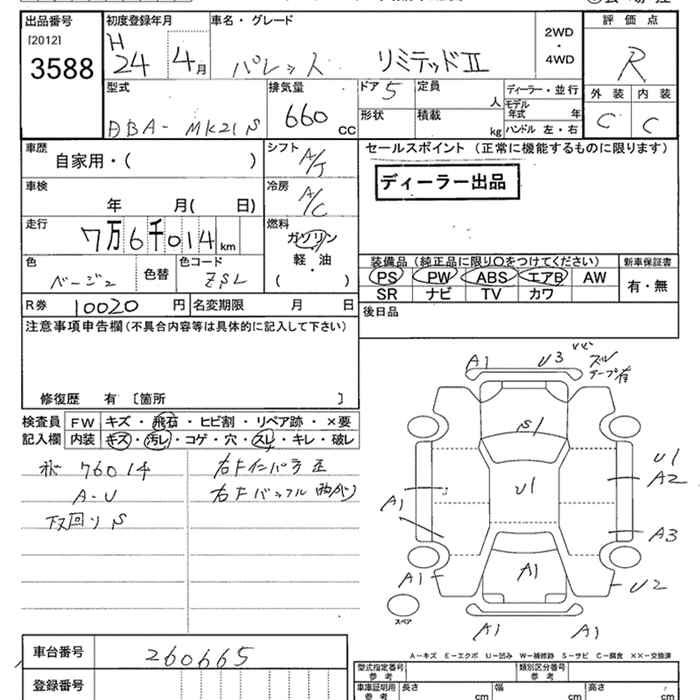 出品番号 初度登録年月 車名・グレード 評価点
[2012] H 2WD
3588 24 4月 パレット リミテッドII ・
4WD R
型式 排気量 ドア 5 定員 人 ディーラー・並行 外装 内装
DBA- MK21S 660 CC 形状 積載 kg モデル年式 年 C C
ハンドル 左・右
車歴 シフト A/T セールスポイント (正常に機能するものに限ります)
自家用・( )
車検 冷房 A/C ディーラー出品
年 月( 日)
走行 燃料
7万6千014km ガソリン
軽・油
( )
色 色替 色コード 装備品 (純正品に限り○をつけてください) 新車保証書
ベージュ ZSL PS PW ABS エアB AW 有・無
SR ナビ TV カワ
R券 10020 円 名変期限 月 日 後日品
注意事項申告欄 (不具合内容等は具体的に記入して下さい)
修復歴 有 〔箇所 〕
検査員 FW キズ・飛石・ヒビ割・リペア跡・×要
記入欄 内装 キズ・汚レ・コゲ・穴・スレ・キレ・破レ
76014 右Fインパネ正
A-U
下回りS
A1 U3 ズル
テープ有
S1
U1 U1
A2
A1
A3
A1 A1 U2
スペア
A1 A1
A-キズ E-エクボ U-凹み W-補修跡 S-サビ C-腐食 ××-交換済
車台番号 260665 型式指定番号 類別区分番号
参考 参考
登録番号 車庫証明用 参考 長さ cm 幅 cm 高さ cm